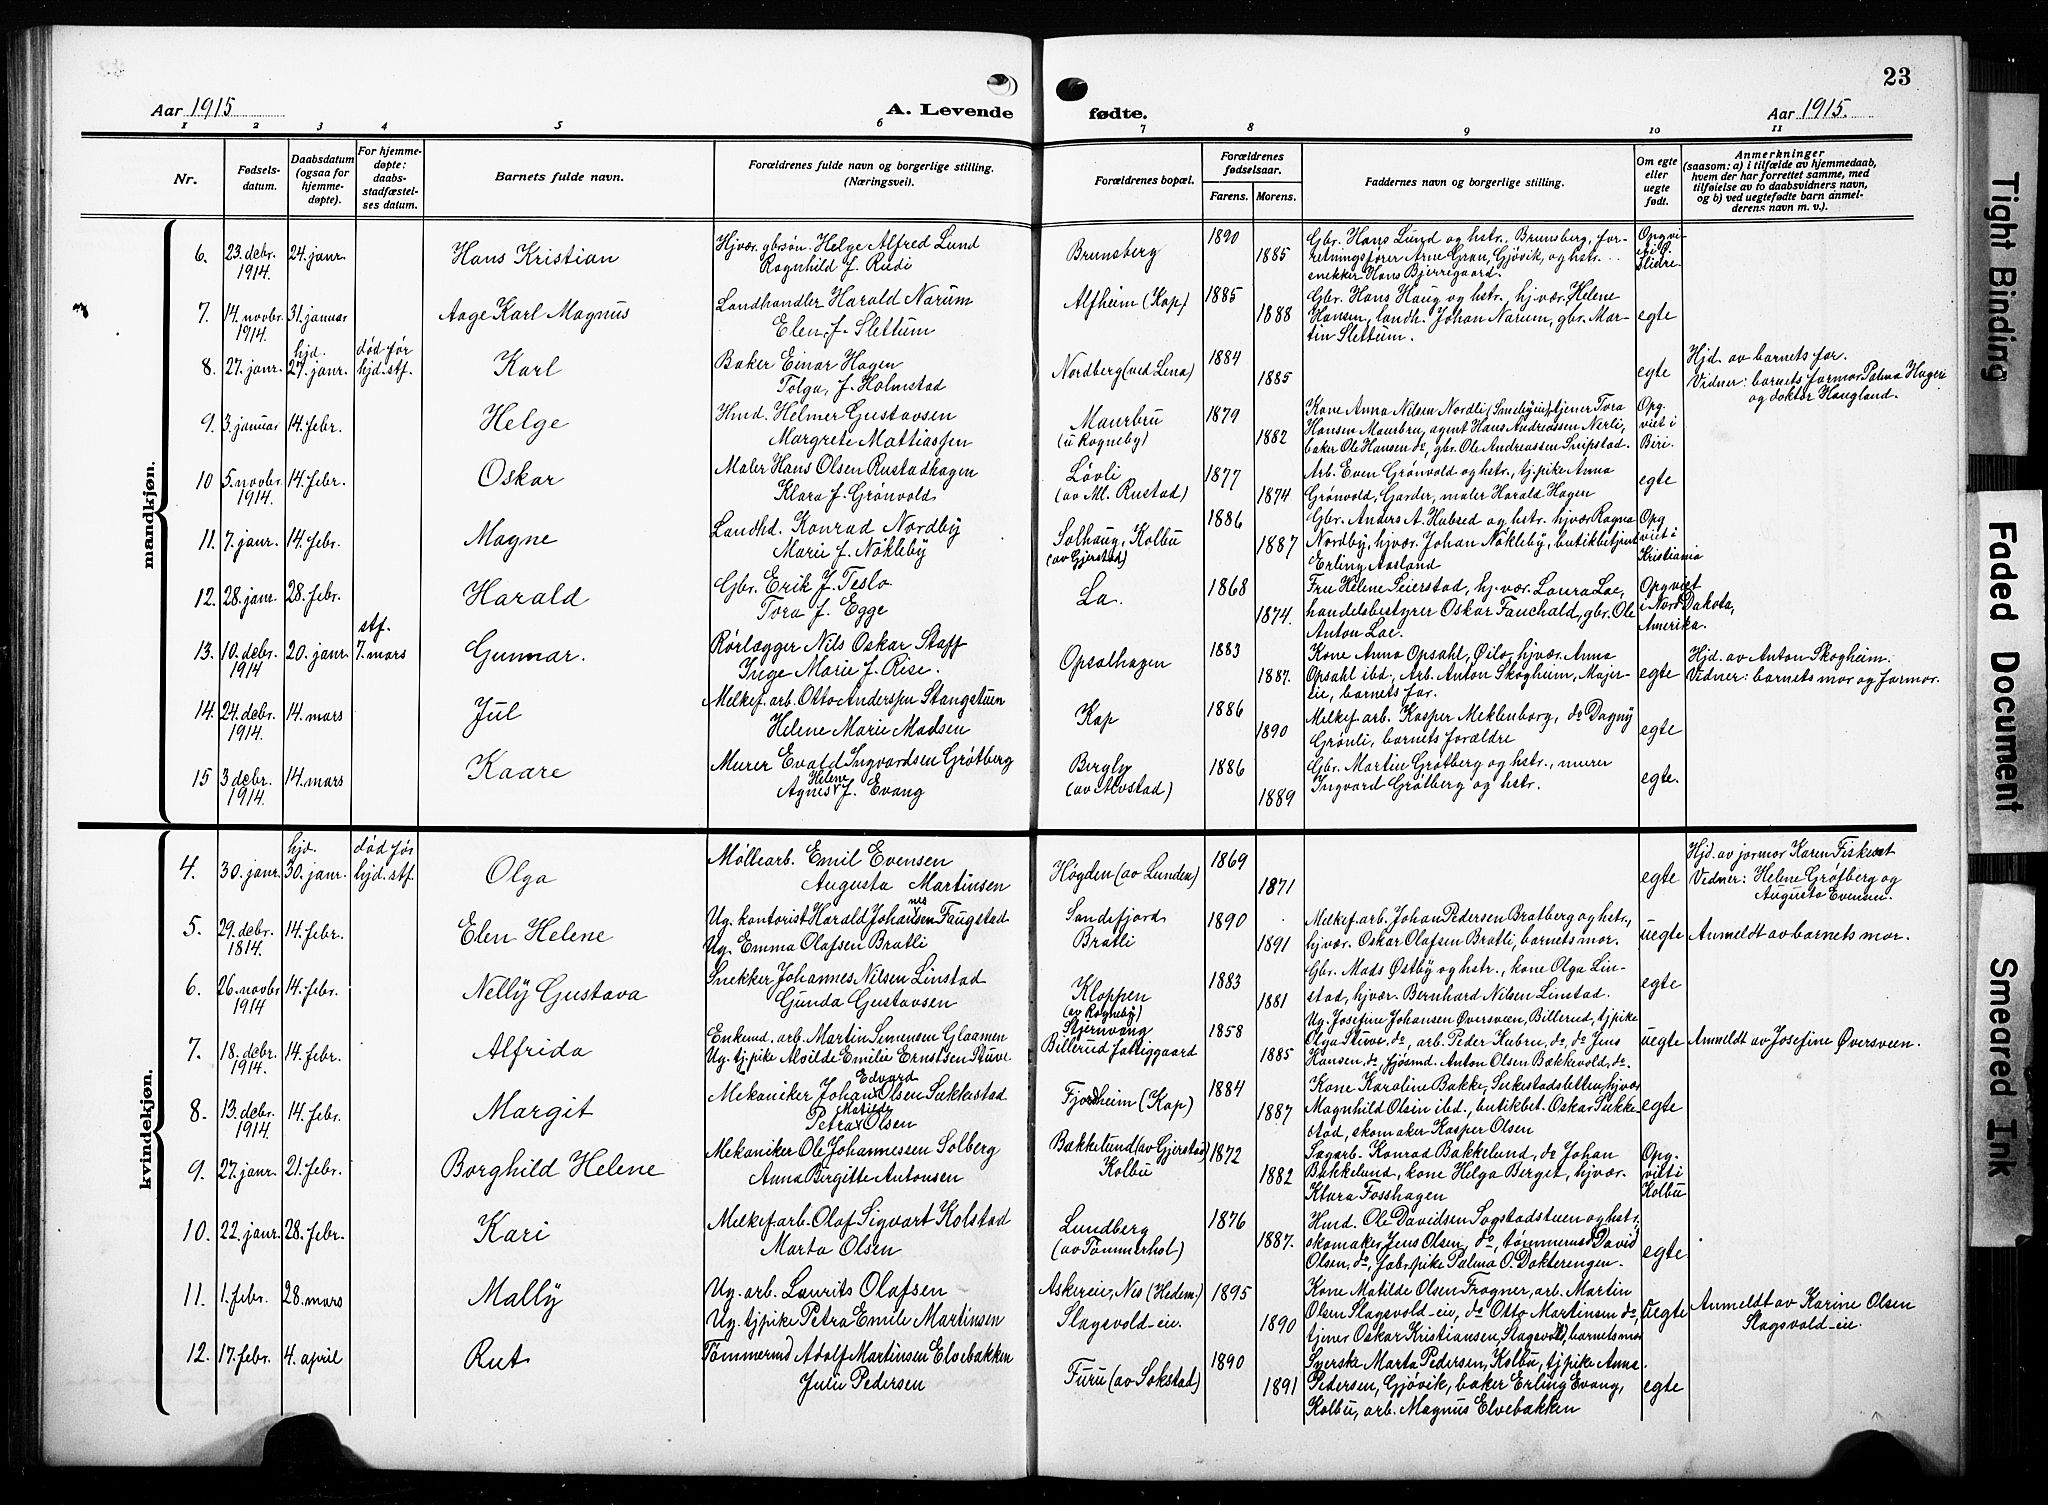 23
Aar 1915
A. Levende
fødte.
Aar 1915.
1 2 3 4 5 6 7 8 9 10 11
Nr.
Fødsels-
datum.
Daabsdatum
(ogsaa for
hjemme-
døpte).
For hjemme-
døpte:
daabs-
stadfæstel-
ses datum.
Barnets fulde navn.
Forældrenes fulde navn og borgerlige stilling.
(Næringsvei).
Forældrenes bopæl.
Forældrenes
fødselsaar.
Farens. Morens.
Faddernes navn og borgerlige stilling.
Om egte
eller
uegte
født.
Anmerkninger
(saasom: a) i tilfælde av hjemmedaab,
hvem der har forrettet samme, med
tilføielse av to daabsvidners navn,
og b) ved uegtefødte barn anmel-
derens navn m. v.).
mandkjøn.
6. 23. debr. 1914. 24. janr. Hans Kristian
Hjvær. gbrsøn. Helge Alfred Lund
Ragnhild f. Rudi
Brunsberg
1890
1885
Gbr. Hans Lund og hstr., Brunsberg, for-
retningsfører Arne Gran, Gjøvik, og hstr.
snekker Hans Bjerregaard.
Opgvi-
et i Ø.
Slidre.
7. 14. novbr. 1914. 31. januar Aage Karl Magnus
Landhandler Harald Narum
Elen, f. Slettum
Alfheim (Kap)
1885
1888
Gbr. Hans Haug og hstr., hj.vær. Helene
Hansen, landh. Johan Narum, gbr. Mar-
tin Slettum.
egte
8. 27. janr. hjd. 27. janr. død før hjd. stf. Karl
Baker Einar Hagen
Tolga, f. Holmstad
Nordberg (ved Lena)
1884
1885
egte
Hjd. av barnets far.
Vidner: barnets farmor Palma Hagen
og doktor Haugland.
9. 3. januar 14. febr. Helge
Hmd. Helmer Gustavsen
Margrete Mattiassen
Maurbru
(u Rogneby)
1879
1882
Kone Anna Nilsen Nordli (Smebyei), tjener Tora
Hansen Maurbru, agent Hans Andreassen Nerli,
baker Ole Hansen do, gbr. Ole Andreassen Snipstad.
Opg.
viet i
Biri.
10 5. novbr. 1914. 14. febr. Oskar
Maler Hans Olsen Rustadhagen
Klara f. Grønvold
Løvli
(av Ml. Rustad)
1877
1874
Arb. Even Grønvold og hstr., tj. pike Anna
Grønvold, Garder, maler Harald Hagen
egte
11. 7. janr. 14. febr. Magne
Landhd. Konrad Nordby
Marie f. Nøkleby
Solhaug, Kolbu
(av Gjerstad)
1886
1887
Gbr. Anders A. Hubred og hstr. hjvær Ragna
Nordby, hjvær. Johan Nøkleby, butikbetjent
Erling Aasland
Opg
viet i
Kristiania
12. 28. janr. 28. febr. Harald
Gbr. Erik J. Teslo
Tora f. Egge
La.
1868
1874.
Fru Helene Seierstad, hj. vær. Laura Lae,
handelsbestyrer Oskar Fauchald, gbr. Ole
Anton Lae.
Opgviet
i Nord Dakota,
Amerika.
13. 10. debr. 1914 20. janr. stf. 7. mars Gunnar.
Rørlægger Nils Oskar Staff
Inge Marie f. Rise.
Opsalhagen
1883
1887.
Kone Anna Opsahl, Øilo, hjvær. Anna
Opsahl ibd., Arb. Anton Skogheim, Majer-
eie, barnets far.
egte
Hjd. av Anton Skogheim.
Vidner: barnets mor og farmor.
14. 24. debr. 1914. 14. mars Jul
Melkef. arb. Otto Anderssen Stangstuen
Helene Marie Madsen
Kap
1886
1890
Melkef. arb. Kasper Meklenborg, do Dagny
Grønli, barnets forældre
egte
15 3 debr. 1914. 14. mars Kaare
Murer Evald Ingvardsen Grøtberg
Agnes Helene f. Evang
Bergly
(av Alvstad)
1886
1889
Gbr. Martin Grøtberg og hstr., murer
Ingvard Grøtberg og hstr.
egte.
kvindekjøn.
4. 30. janr. hjd. 30. janr. død før hjd. stf. Olga
Møllearb. Emil Evensen
Augusta Martinsen
Høgden (av Lunden)
1869
1871
egte
Hjd. av jormor Karen Fiskevet
Vidner: Helene Grøtberg og
Augusta Evensen.
5. 29. debr. 1814. 14. febr. Elen Helene
Ug. kontorist Harald Johannessen Faugstad
Ug. Emma Olafsen Bratli
Sandefjord
Bratli
1890
1891
Melkef. arb. Johan Pedersen Bratberg og hstr.,
hjvær. Oskar Olafsen Bratli, barnets mor.
uegte
Anmeldt av barnets mor.
6. 26. novbr 1914 14. febr. Nelly Gustava
Snekker Johannes Nilsen Linstad
Gunda Gustavsen
Kloppen
(av Rogneby)
1883
1881
Gbr. Mads Østby og hstr., kone Olga Lin-
stad, hjvær. Bernhard Nilsen Linstad.
egte
7. 18. debr. 1914. 14. febr. Alfrida
Enkemd. arb. Martin Simensen Glaamen
Ug. tj. pike Alvilde Emilie Ernstsen Stuve
Stjernvang
Billerud fattiggaard
1858
1885
Ug. Josefine Johansen Øversveen, Billerud, tj. pike
Olga Stuve, do, arb. Peder Kubru, do, do Jens
Hansen, do, fjøsmd. Anton Olsen Bækkevold, do.
uegte
Anmeldt av Josefine Øversveen.
8. 13. debr. 1914. 14. febr. Margit
Mekaniker Johan Edvard Olsen Sukkestad
Petra Matilde Olsen
Fjordheim (Kap)
1884
1887
Kone Karoline Bakke, Sukestadsletten, hjvær
Magnhild Olsen ibd., butikbet. Oskar Sukke-
stad, skomaker Kasper Olsen
egte
9. 27. janr. 21. febr. Borghild Helene
Mekaniker Ole Johannessen Solberg
Anna Birgitte Antonsen
Bakkelund (av Gjerstad)
Kolbu
1872
1882
Sagarb. Konrad Bakkelund, do Johan
Bakkelund, kone Helga Berget, hjvær.
Klara Fosshagen
Opg.
viet i
Kolbu
10. 22. janr. 28. febr. Kari
Melkef. arb. Olaf Sigvart Kolstad
Marta Olsen
Lundberg
(av Tømmerhol)
1876
1887.
Hmd. Ole Davidsen Sogstadstuen og hstr.
skomaker Jens Olsen, do, tømmermd David
Olsen, do, fabr.pike Palma O. Dokterengen.
egte
11. 1. febr. 28. mars Mally
Ug. arb. Laurits Olafsen
Ug. tj.pike Petra Emilie Martinsen
Askereie, Nes (Hedem.)
Slagsvold-eie.
1895
1890
Kone Matilde Olsen Frogner, arb. Martin
Olsen Slagsvold-eie, do Otto Martinsen do,
tjener Oskar Kristiansen, Slagsvold, barnets mor
uegte
Anmeldt av Karine Olsen
Slagsvold-eie
12. 17. febr. 4. april Rut
Tømmermd Adolf Martinsen Elvebakken
Julie Pedersen
Furu (av Sokstad)
1890
1891
Syerske Marta Pedersen, Kolbu, tj.pike Anna
Pedersen, Gjøvik, baker Erling Evang,
Kolbu, arb. Magnus Elvebakken
egte
Tight Binding
Faded Document
Smeared Ink